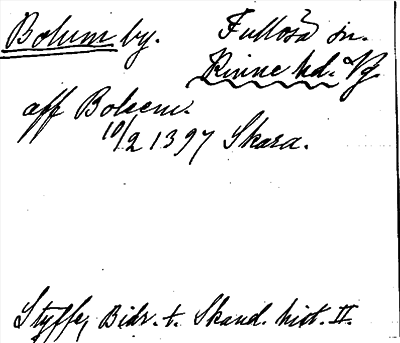 Bolum by. Fullösa sn.
Kinne hd. Vg.
aff Bolsem.
10/2 1397 Skara.
Styffe, Bidr. t. Skand. hist. II.